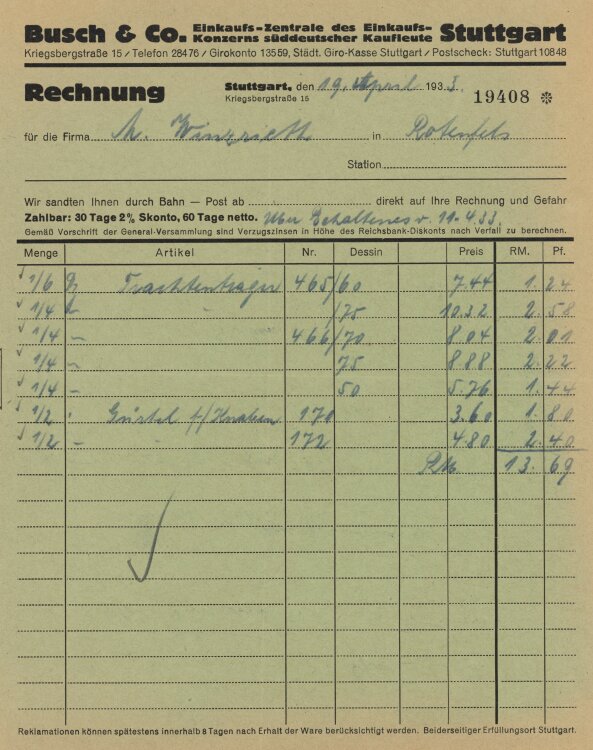 Busch & Co. Einkaufs-Zentrale des Einkaufs-Konzerns süddeutscher Kaufleute Stuttgart
Kriegsbergstraße 15 / Telefon 28476 / Girokonto 13559, Städt. Giro-Kasse Stuttgart / Postscheck: Stuttgart 10848
Rechnung Stuttgart, den 19. April 1933.
Kriegsbergstraße 15 19408 ✻
für die Firma in Rotenfels
Station
Wir sandten Ihnen durch Bahn — Post ab direkt auf Ihre Rechnung und Gefahr
Zahlbar: 30 Tage 2% Skonto, 60 Tage netto. v. 11.4.33.
Gemäß Vorschrift der General-Versammlung sind Verzugszinsen in Höhe des Reichsbank-Diskonts nach Verfall zu berechnen.
Menge Artikel Nr. Dessin Preis RM. Pf.
1/6 Trachtenträger 465/60 7.44 1.24
1/4 /75 10.32 2.58
1/4 466/70 8.04 2.01
1/4 75 8.88 2.22
1/4 50 5.76 1.44
1/2 Gürtel f/Knaben 170 3.60 1.80
1/2 172 4.80 2.40
RM 13.69
Reklamationen können spätestens innerhalb 8 Tagen nach Erhalt der Ware berücksichtigt werden. Beiderseitiger Erfüllungsort Stuttgart.